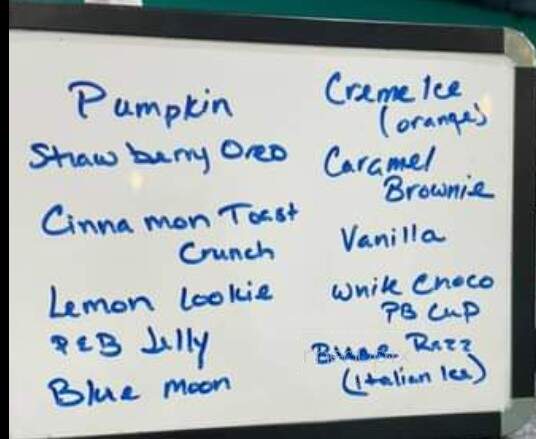 Pumpkin
Strawberry Oreo
Cinnamon Toast
Crunch
Lemon Cookie
PEB Jelly
Blue Moon
Creme Ice
(orange)
Caramel
Brownie
Vanilla
White Choco
PB Cup
Razz
(Italian Ice)